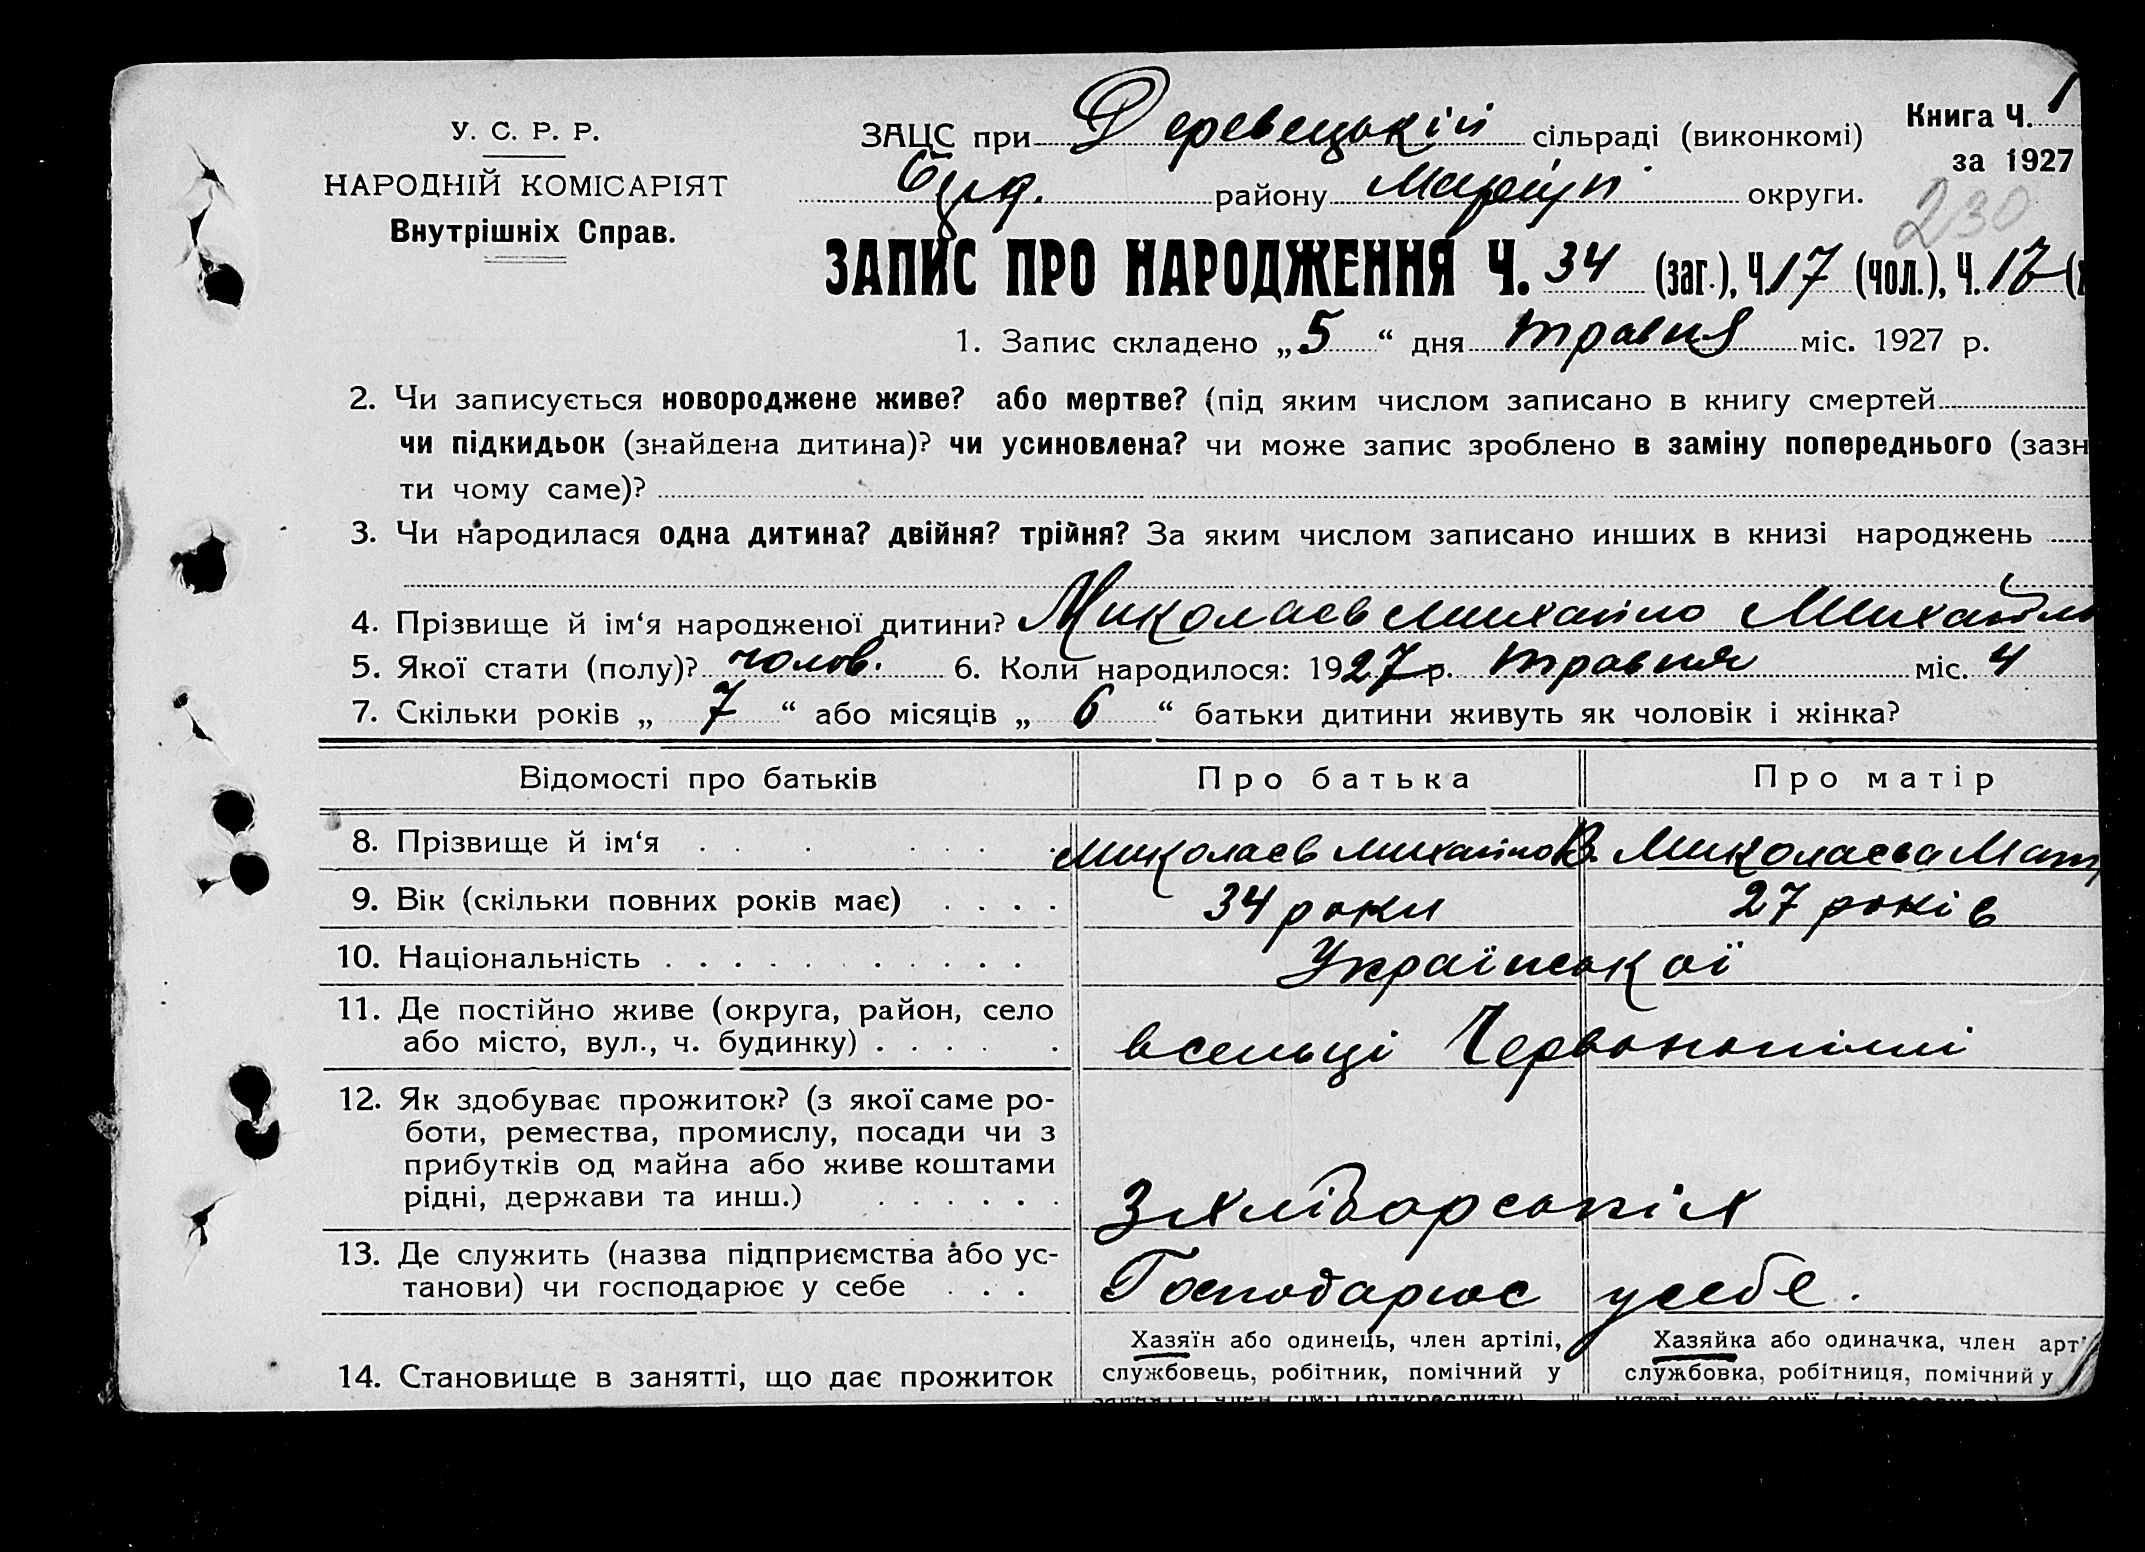 У. С. Р. Р.
НАРОДНІЙ КОМІСАРІЯТ
Внутрішніх Справ.
ЗАЦС при Деревецькій сільраді (виконкомі)
району Маріуп округи.
Книга Ч. 1
за 1927
230
ЗАПИС ПРО НАРОДЖЕННЯ Ч. 34 (заг.), Ч. 17 (чол.), Ч.
1. Запис складено „ 5 “ дня травня міс. 1927 р.
2. Чи записується новороджене живе? або мертве? (під яким числом записано в книгу смертей
чи підкидьок (знайдена дитина)? чи усиновлена? чи може запис зроблено в заміну попереднього (зазн
ти чому саме)?
3. Чи народилася одна дитина? двійня? трійня? За яким числом записано инших в книзі народжень
4. Прізвище й ім‘я народженої дитини? Миколаєв Михайло Михайл
5. Якої стати (полу)? чолов. 6. Коли народилося: 1927 р. травня міс. 4
7. Скільки років „ 7 “ або місяців „ 6 “ батьки дитини живуть як чоловік і жінка?
Відомості про батьків Про батька Про матір
8. Прізвище й ім‘я Миколаєв Михайло В. Миколаєва Мат
9. Вік (скільки повних років має) 34 роки 27 років
10. Національність Української
11. Де постійно живе (округа, район, село
або місто, вул., ч. будинку) в сельці Червонопіллі
12. Як здобуває прожиток? (з якої саме ро-
боти, ремества, промислу, посади чи з
прибутків од майна або живе коштами
рідні, держави та инш.)
13. Де служить (назва підприємства або ус-
танови) чи господарює у себе Господарює у себе.
14. Становище в занятті, що дає прожиток
Хазяїн або одинець, член артілі,
службовець, робітник, помічний у
Хазяйка або одиначка, член арт
службовка, робітниця, помічний у